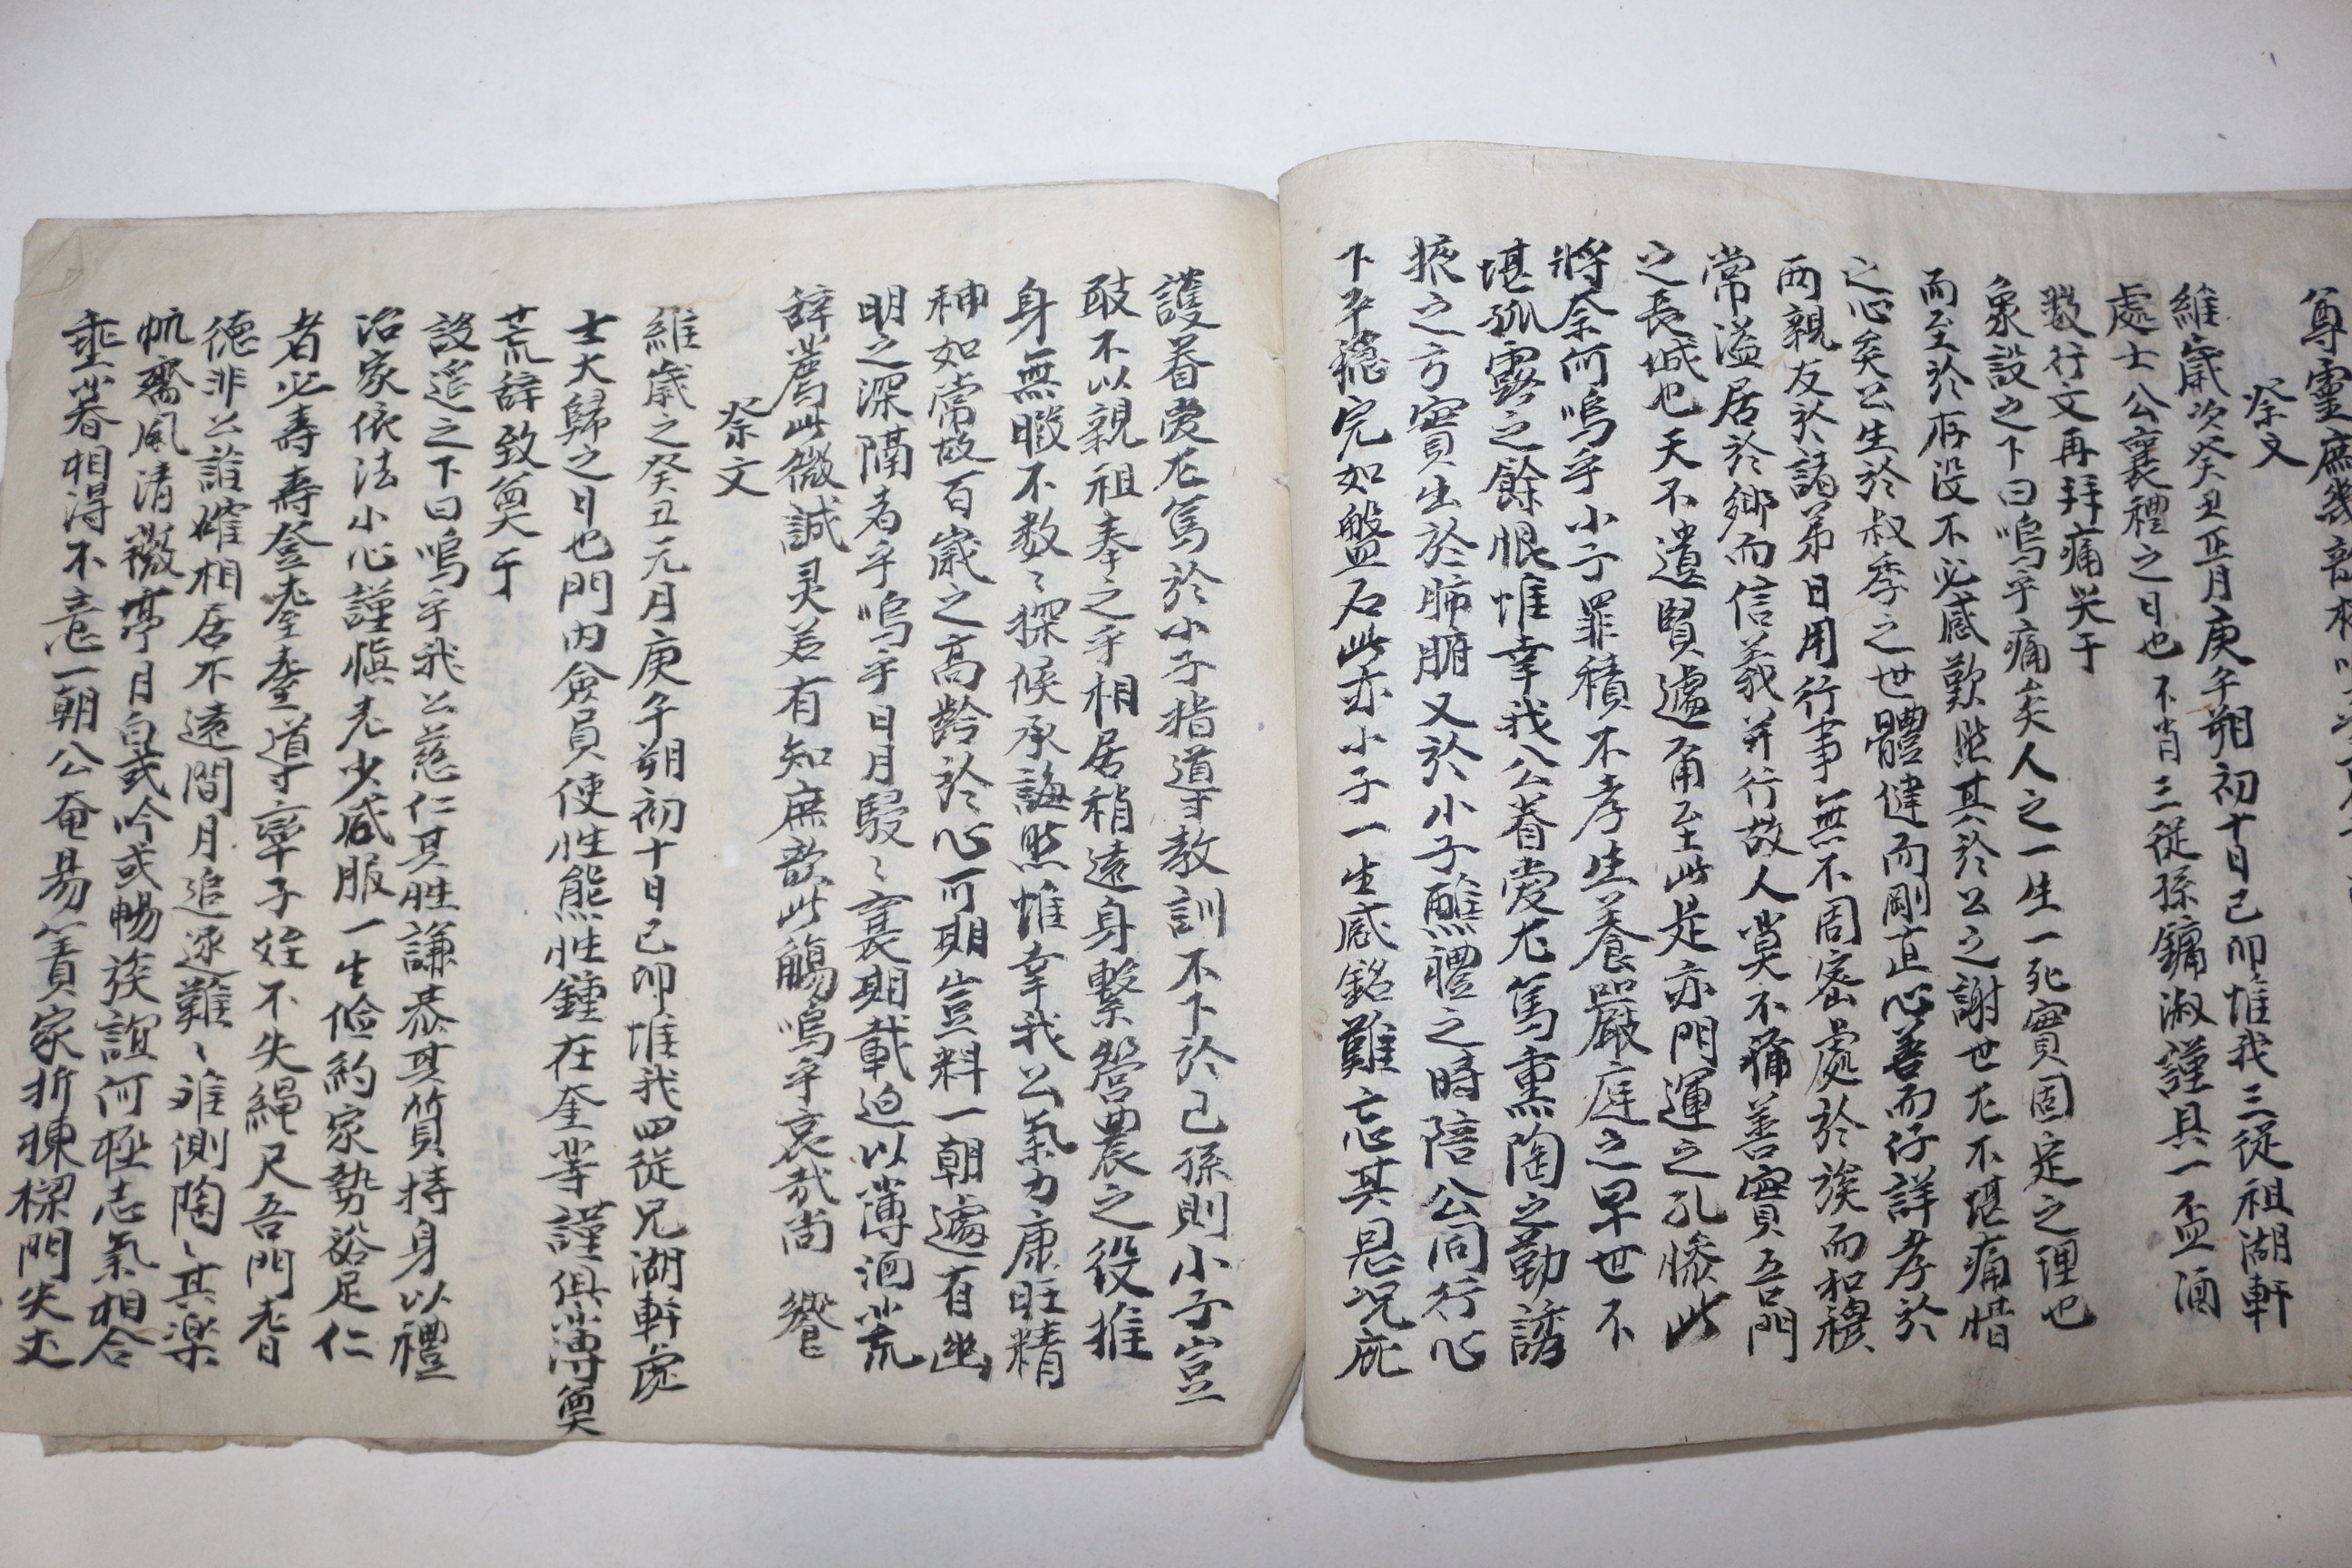 尊靈庶幾
祭文
維歲次癸丑正月庚午朔初十日己卯惟我三從祖湖軒
處士公襄禮之日也不肖三從孫鏞淑謹具一盃酒
數行文再拜痛哭于
象設之下曰嗚乎痛矣人之一生一死實固定之理也
而至於存沒不必感歎然其於公之謝世尤不堪痛惜
之心矣公生於叔季之世體健而剛直心善而仔詳孝於
兩親友於諸弟日用行事無不周密處於族而和穆
常溢居於鄉而信義并行故人莫不稱善實吾門
之長城也天不遺賢遽有至此是亦門運之孔慘此
將奈何嗚乎小子罪積不孝生養嚴庭之早世不
堪孤露之餘恨惟幸我公眷愛尤篤熏陶之勤誘
掖之方實出於肺腑又於小子醮禮之時陪公同行心
下平穩完如盤石此亦小子一生感銘難忘其恩況庇
護眷愛尤篤於小子指導教訓不下於己孫則小子豈
敢不以親祖奉之乎相居稍遠身繫營農之役推
身無暇不數〻探候承誨然惟幸我公氣力康旺精
神如常故百歲之高齡於心可期豈料一朝遽有幽
明之深隔者乎嗚乎日月駸〻襄期載迫以薄酒荒
辞薦此微誠灵若有知庶歆此觴嗚乎哀哉尚 饗
祭文
維歲之癸丑元月庚午朔初十日己卯惟我四從兄湖軒處
士大歸之日也門內僉員使性熊性鍾在奎等謹俱薄奠
荒辞致奠于
設筵之下曰嗚乎我公慈仁其性謙恭其質持身以禮
治家依法小心謹愼老少咸服一生儉約家勢裕足仁
者必壽壽登耋耋導率子姪不失繩尺吾門耆
德非公誰確相居不遠間月追逐難〻誰側陶〻其楽
帆齋風清薇亭月白或吟或暢族誼何極志氣相合
垂暮相得不意一朝公奄易簀家折棟樑門失丈